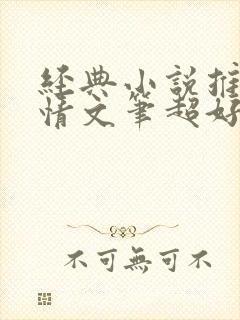 經典小說推
情文筆超好
不可無可不